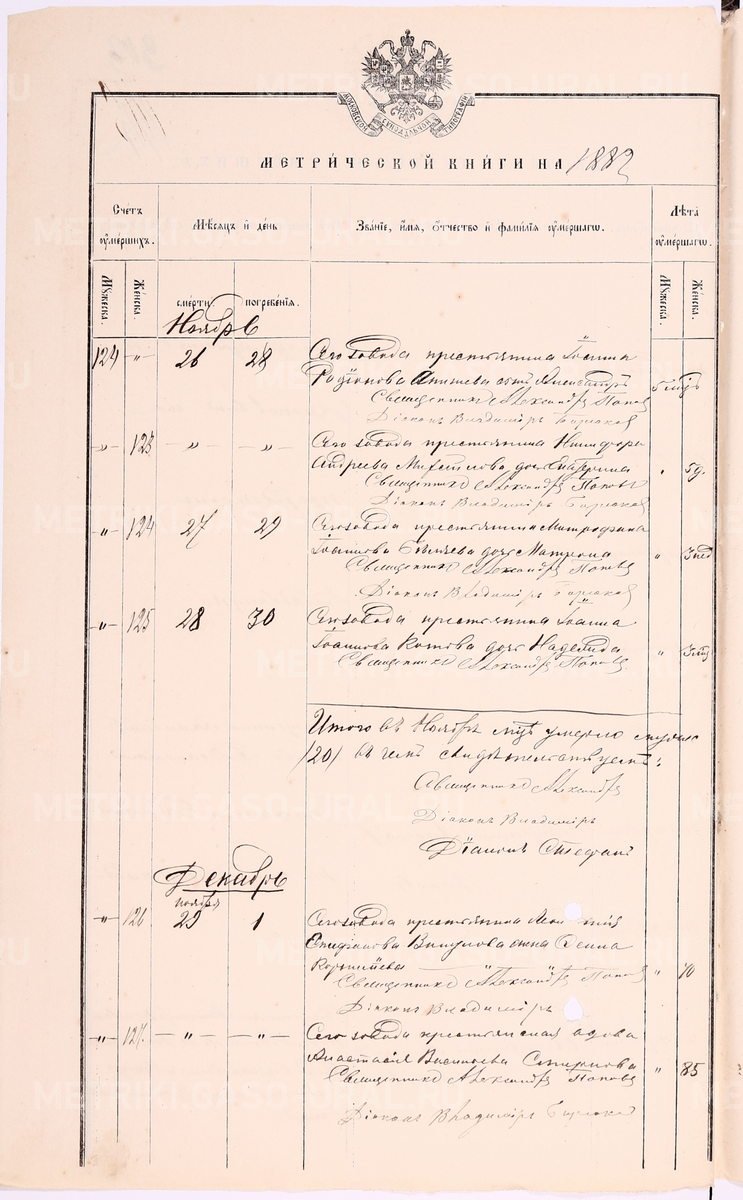 МОСКОВСКОЙ СѴНОДАЛЬНОЙ ТИПОГРАФІИ
МЕТРИ́ЧЕСКОЙ КНИ́ГИ НА 1882
Сче́тъ оу҆ме́ршихъ.
Мѣ́сяцъ и҆ де́нь
Зва́нїе, и҆́мя, ѻ҆́тчество и҆ фами́лїя оу҆ме́ршагѡ.
Лѣ̀та оу҆ме́ршагѡ.
Мꙋ́жеска.
Же́нска.
сме́рти
погребе́нїя.
Мꙋ́жеска.
Же́нска.
Ноябрь
124 " 26 28 Сего завода крестьянина Іоанна
Родіонова сынъ Александръ 5 мцъ
Священникъ Александръ Поповъ
Діаконъ Владиміръ
" 123 " " Сего завода крестьянина Никифора
Андреева Михайлова дочь Екатерина " 5 д.
Священникъ Александръ Поповъ
Діаконъ Владиміръ
" 124 27 29 Сего завода крестьянина Митрофана
Іоаннова Бѣляева дочь Матрона " 3 нед
Священникъ Александръ Поповъ
Діаконъ Владиміръ
" 125 28 30 Сего завода крестьянина Іоанна
Іоаннова Котова дочь Надежда " 3 мц
Священникъ Александръ Поповъ
Итого въ Ноябрѣ мцѣ умерло
/20/ въ чемъ свидѣтельствуемъ:
Священникъ Александръ
Діаконъ Владиміръ
Діаконъ Стефанъ
Декабрь
ноября
" 126 29 1 Сего завода крестьянина
Епифанова жена
Корнилиева " 70
Священникъ Александръ Поповъ
Діаконъ Владиміръ
" 127. " " Сего завода крестьянская вдова
Анастасія Васильева Смирнова " 85
Священникъ Александръ Поповъ
Діаконъ Владиміръ
METRIKI.GASO-URAL.RU